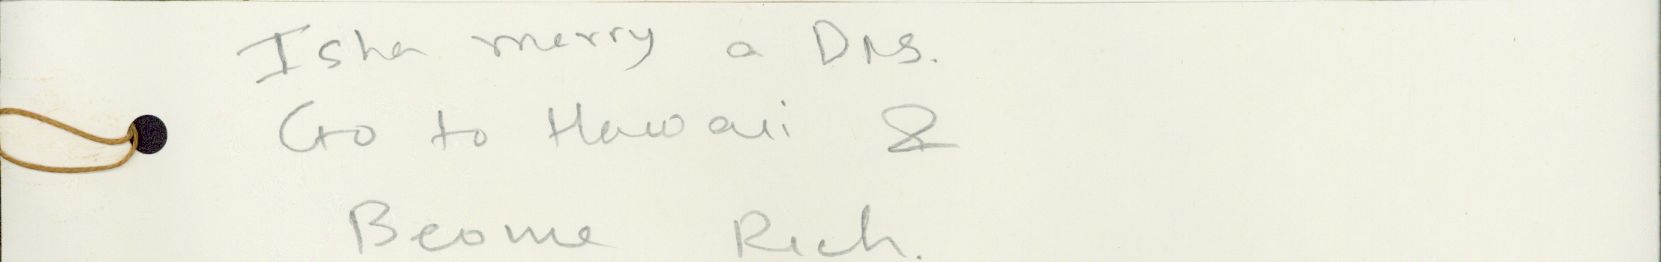 Isha merry a Drs.
Go to Hawaii &
Become Rich.